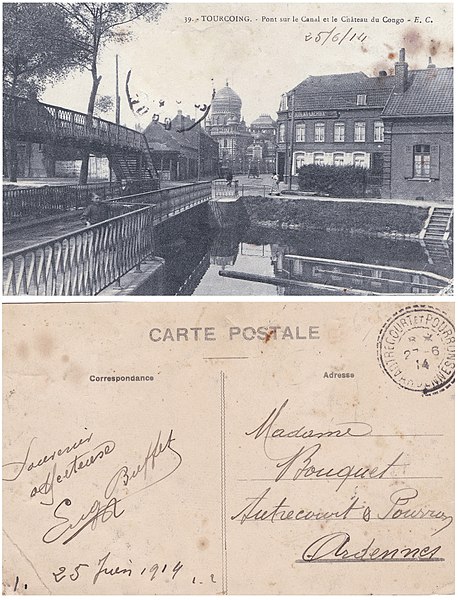 39. - TOURCOING. - Pont sur le Canal et le Château du Congo - E. C.
25/6/14
CARTE POSTALE
Correspondance
Adresse
AUTRECOURT ET POURRON
ARDENNES
6
14
Souvenir
affectueuse
Buffet
Madame
Bouquet
Autrecourt & Pourron
Ardennes
1. 25 Juin 1914